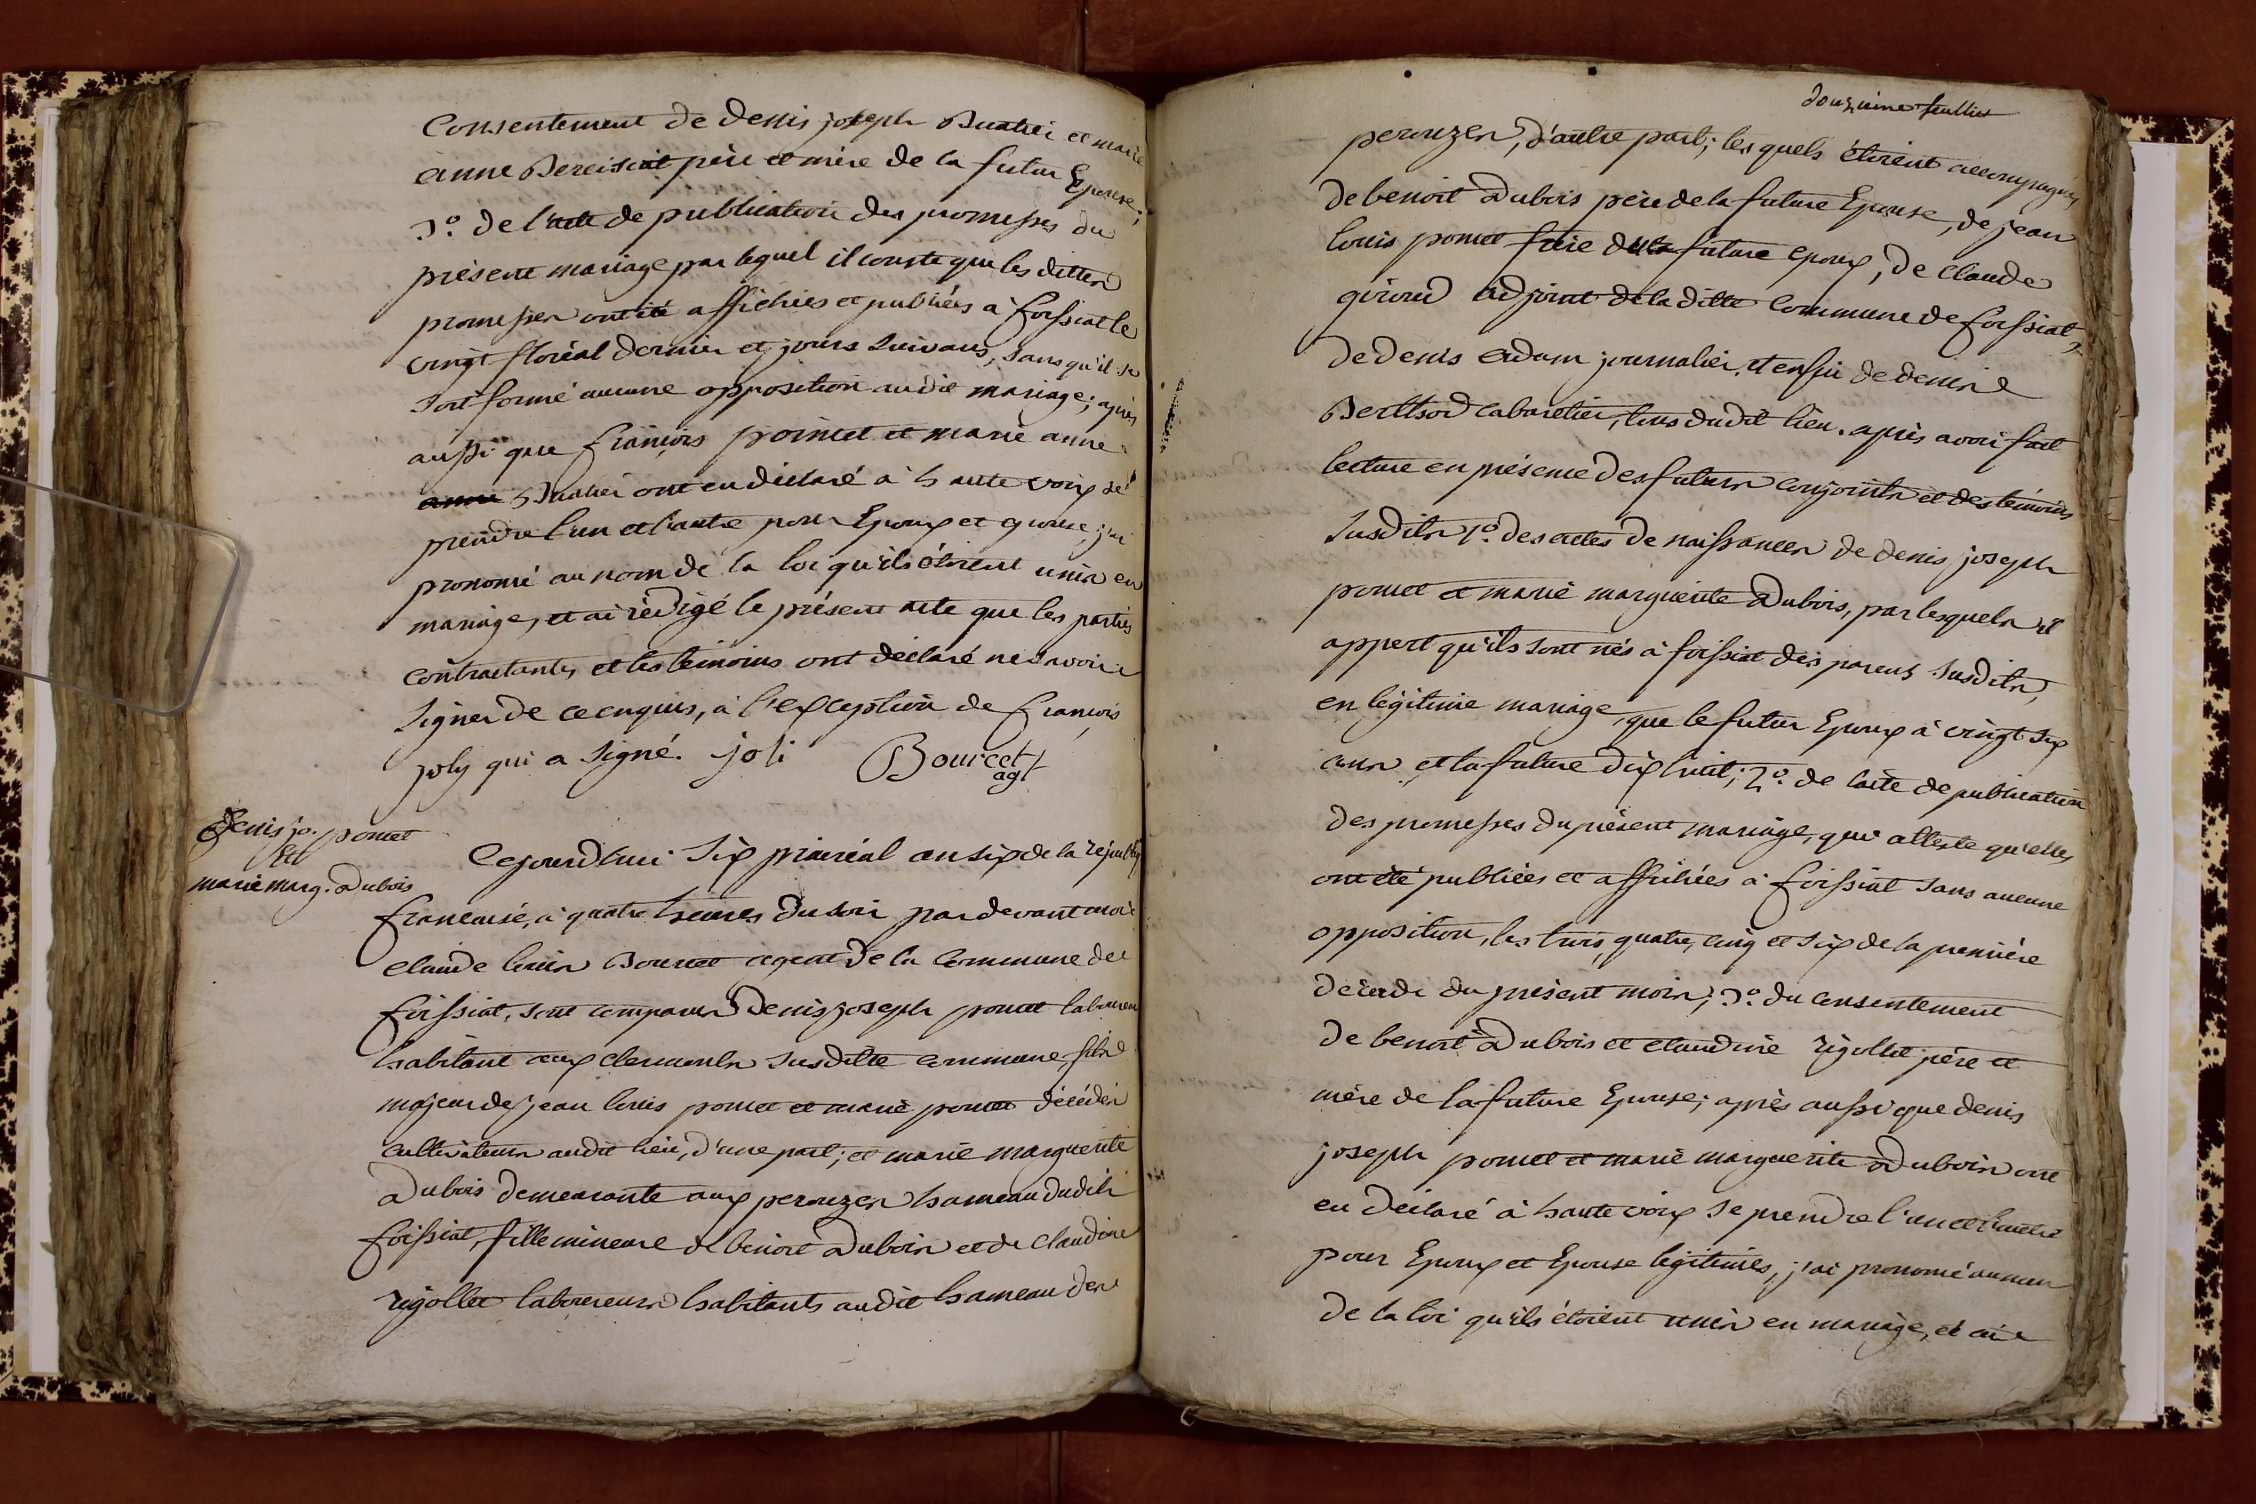 Consentement de denis joseph Buatier et marie
anne Bereisiat père et mère de la futur Epouse;
3o. de l'acte de publication des promesses du
présent mariage par lequel il conste que les dittes
promesses ont été affichées et publiées à foissiat le
vingt floréal dernier et jours suivans, sans qu'il se
soit formé aucune opposition audit mariage; après
aussi que françois pomet et marie anne
Buatier ont eu déclaré à haute voix se
prendre l'un et l'autre pour Epoux et epouse, j'ai
prononcé au nom de la loi qu'ils étoient unis en
mariage, et ai rédigé le présent acte que les parties
contractantes et les témoins ont déclaré ne savoir
signer de ce enquis, à l'exception de françois
joly qui a signé. joli Bourcet
agt
Denis jo. pomet
et
marie marg. Dubois
Cejourdhui six prairéal an six de la républiq
francaise, à quatre heures du soir par devant moi
claude louis Bourcet agent de la commune de
foissiat, sont comparus Denis joseph pomet laboureur
habitant aux clements susditte commune, fils
majeur de jean louis pomet et marie pomet décédés
cultivateurs audit lieu, d'une part; et marie marguerite
Dubois demeurante aux perouzes hameau dudit
foissiat, fille mineure de benoit Dubois et de claudine
rigollet laboureurs habitants audit hameau des
douzieme feuillet
perouzes, d'autre part; les quels étoient accompagnés
de benoit Dubois père de la future Epouse, de jean
louis pomet frère future epoux, de claude
giroud adjoint de la ditte commune de foissiat,
de denis adam journalier, et enfin de denis
Berthod cabaretier, tous dudit lieu. après avoir fait
lecture en présence des futurs conjoints et des témoins
susdits 1o. des actes de naissances de denis joseph
pomet et marie marguerite Dubois, par lesquels il
appert qu'ils sont nés à foissiat des parens susdits,
en légitime mariage, que le futur Epoux à vingt six
ans et la future dix huit; 2o. de l'acte de publication
des promesses du présent mariage, qui atteste qu'elles
ont été publiées et affichées à foissiat sans aucune
opposition, les trois, quatre, cinq et six de la première
décade du présent mois; 3o. du consentement
de benoit Dubois et claudine rigollet père et
mère de la future Epouse; après aussi que denis
joseph pomet et marie marguerite Dubois ont
eu déclaré à haute voix se prendre l'un et l'autre
pour Epoux et Epouse légitimes, j'ai prononcé au nom
de la loi qu'ils étoient unis en mariage, et ai